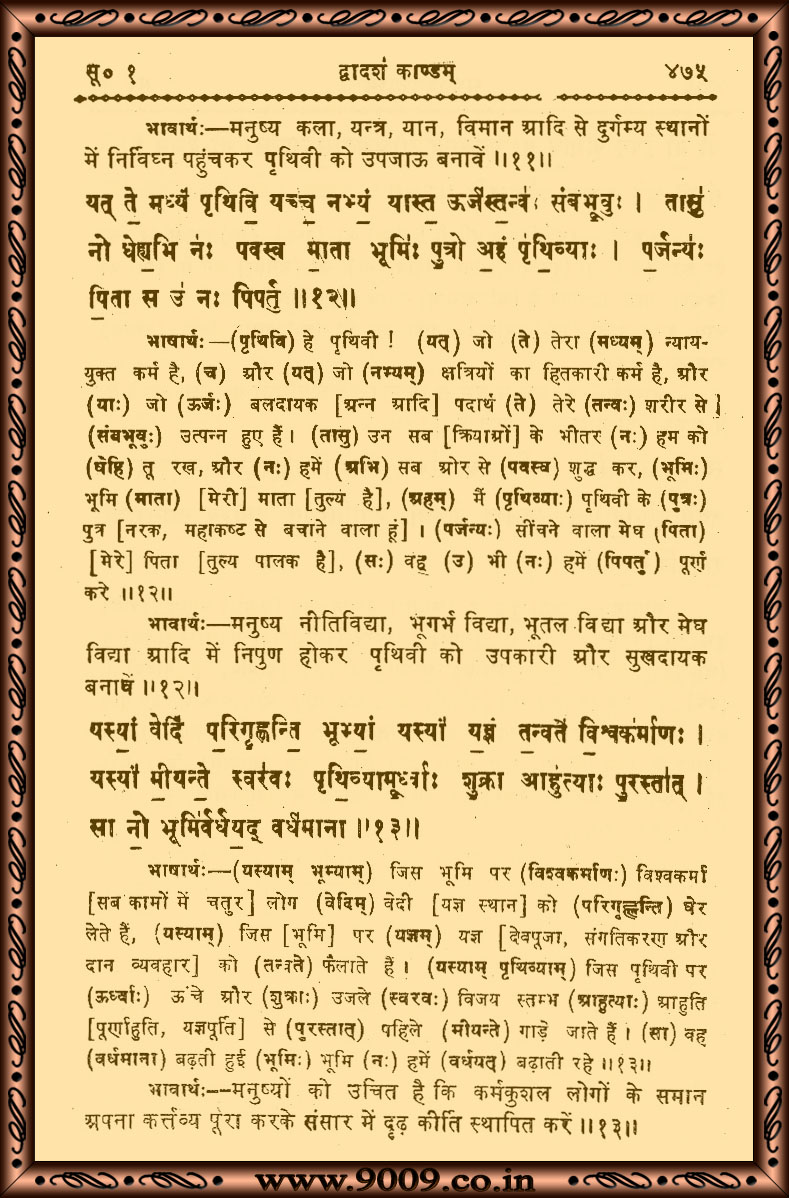 सू० १ द्वादशं काण्डम् ४७५
भावार्थः—मनुष्य कला, यन्त्र, यान, विमान आदि से दुर्गम्य स्थानों
में निर्विघ्न पहुंचकर पृथिवी को उपजाऊ बनावें ॥११॥
यत् ते॒ मध्यं॑ पृथिवि॒ यच्च॒ नभ्यं॒ यास्त॒ ऊर्ज॑स्त॒न्वः॑ संबभू॒वुः । तासु॑
नो धेह्य॒भि नः॑ पवस्व मा॒ता भूमिः॑ पु॒त्रो अ॒हं पृ॑थि॒व्याः । प॒र्जन्यः॑
पि॒ता स उ॑ नः पिपर्तु ॥१२॥
भाषार्थः—(पृथिवि) हे पृथिवी ! (यत्) जो (ते) तेरा (मध्यम्) न्याय-
युक्त कर्म है, (च) और (यत्) जो (नभ्यम्) क्षत्रियों का हितकारी कर्म है, और
(याः) जो (ऊर्जः) बलदायक [अन्न आदि] पदार्थ (ते) तेरे (तन्वः) शरीर से
(संबभूवुः) उत्पन्न हुए हैं। (तासु) उन सब [क्रियाओं] के भीतर (नः) हम को
(धेहि) तू रख, और (नः) हमें (अभि) सब ओर से (पवस्व) शुद्ध कर, (भूमिः)
भूमि (माता) [मेरी] माता [तुल्य है], (अहम्) मैं (पृथिव्याः) पृथिवी के (पुत्रः)
पुत्र [नरक, महाकष्ट से बचाने वाला हूं] । (पर्जन्यः) सींचने वाला मेघ (पिता)
[मेरे] पिता [तुल्य पालक है], (सः) वह (उ) भी (नः) हमें (पिपर्तु) पूर्ण
करे ॥१२॥
भावार्थः—मनुष्य नीतिविद्या, भूगर्भ विद्या, भूतल विद्या और मेघ
विद्या आदि में निपुण होकर पृथिवी को उपकारी और सुखदायक
बनावें ॥१२॥
यस्यां॒ वेदिं॑ परिगृ॒ह्णन्ति॒ भूम्यां॒ यस्यां॑ य॒ज्ञं त॒न्वते॑ वि॒श्वक॑र्माणः ।
यस्यां॑ मी॒यन्ते॒ स्वर॑वः पृथि॒व्यामू॒र्ध्वाः शु॒क्रा आहु॑त्याः पु॒रस्ता॑त् ।
सा नो॒ भूमि॑र्वर्धय॒द् वर्ध॑माना ॥१३॥
भाषार्थः—(यस्याम् भूम्याम्) जिस भूमि पर (विश्वकर्माणः) विश्वकर्मा
[सब कामों में चतुर] लोग (वेदिम्) वेदी [यज्ञ स्थान] को (परिगृह्णन्ति) घेर
लेते हैं, (यस्याम्) जिस [भूमि] पर (यज्ञम्) यज्ञ [देवपूजा, संगतिकरण और
दान व्यवहार] को (तन्वते) फैलाते हैं । (यस्याम् पृथिव्याम्) जिस पृथिवी पर
(ऊर्ध्वाः) ऊंचे और (शुक्राः) उजले (स्वरवः) विजय स्तम्भ (आहुत्याः) आहुति
[पूर्णाहुति, यज्ञपूर्ति] से (पुरस्तात्) पहिले (मीयन्ते) गाड़े जाते हैं । (सा) वह
(वर्धमाना) बढ़ती हुई (भूमिः) भूमि (नः) हमें (वर्धयत्) बढ़ाती रहे ॥१३॥
भावार्थः--मनुष्यों को उचित है कि कर्मकुशल लोगों के समान
अपना कर्त्तव्य पूरा करके संसार में दृढ़ कीर्ति स्थापित करें ॥१३॥
www.9009.co.in